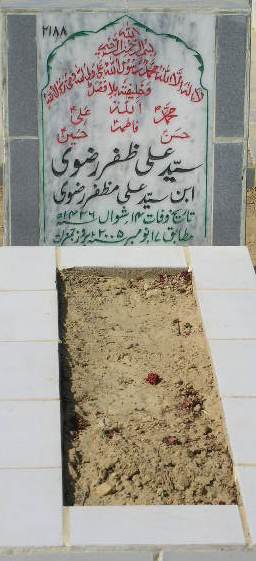 ۲۱۸۸
اللہ
بسم اللہ الرحمن الرحیم
لا الہ الا اللہ محمد رسول اللہ علی ولی اللہ وصی رسول اللہ
وخلیفتہ بلا فصل
محمدؐ اللہ علیؑ
حسنؑ فاطمہؑ حسینؑ
سیّد علی ظفر رضوی
ابن سیّد علی مظفر رضوی
تاریخ وفات ۱۴ شوال ۱۴۲۶ھ
مطابق ۱۷ نومبر ۲۰۰۵ بروز جمعرات